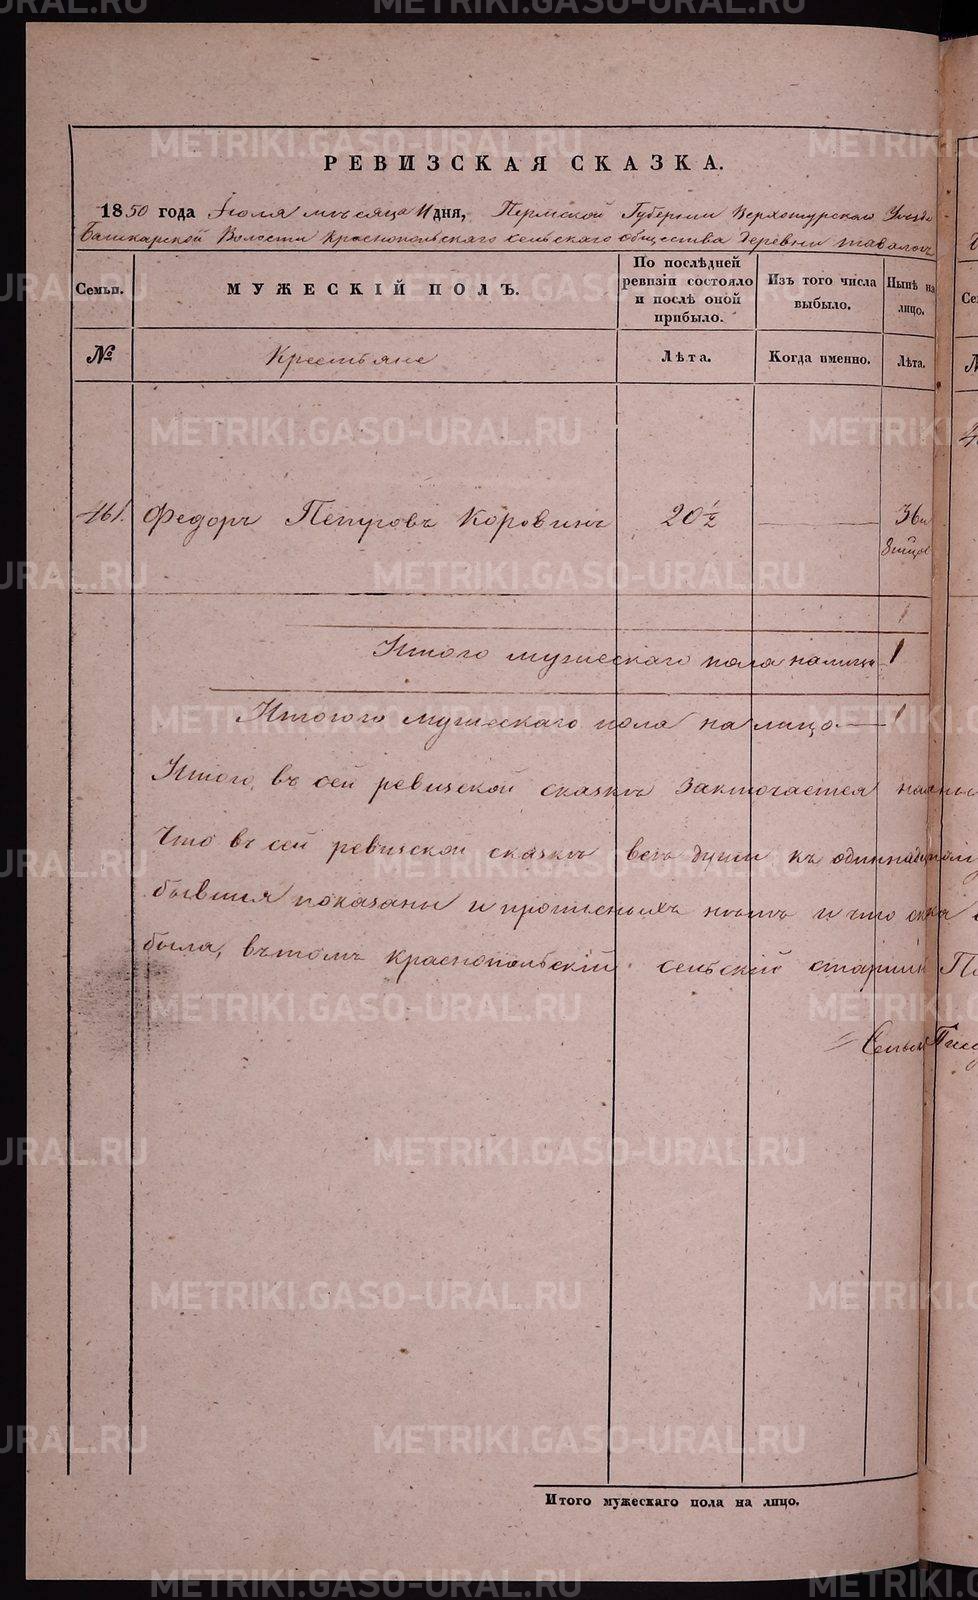 METRIKI.GASO-URAL.RU
РЕВИЗСКАЯ СКАЗКА.
1850 года Июля месяца 11 дня, Пермской Губернии Верхотурскаго Уезда
Башкарской Волости Краснопольскаго сельскаго общества деревни
Семьи.
МУЖЕСКІЙ ПОЛЪ.
По послѣдней ревизіи состояло и послѣ оной прибыло.
Изъ того числа выбыло.
Нынѣ на лицо.
№
Крестьяне
Лѣта.
Когда именно.
Лѣта.
161. Федоръ Петровъ Коровинъ 20 ½ 36
1
Итого мужескаго пола налицо 1
Итого мужескаго пола на лицо 1
Итого, въ сей ревизской сказкѣ заключается
Что въ сей ревизской сказкѣ все души къ
бывшія показаны и что
была, въ томъ Краснопольскій сельскій
Итого мужескаго пола на лицо.